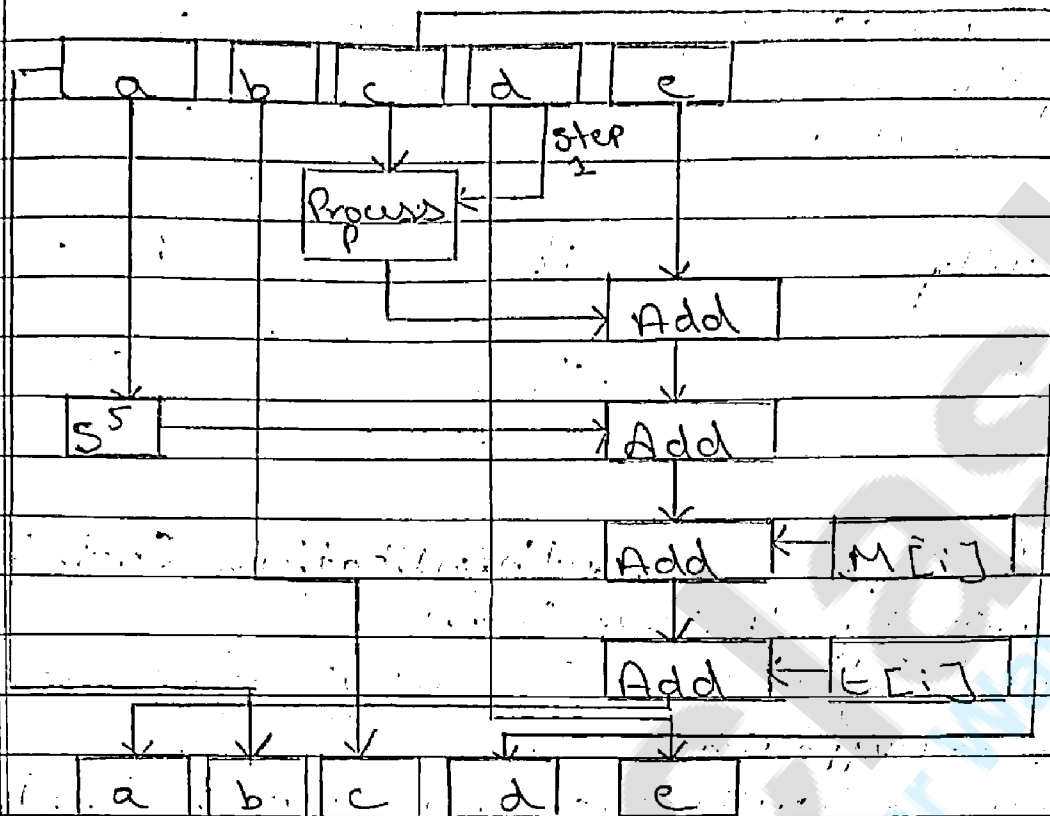 a b c d e
step
1
Process
P
Add
S5 Add
Add M[i]
Add t[i]
a b c d e